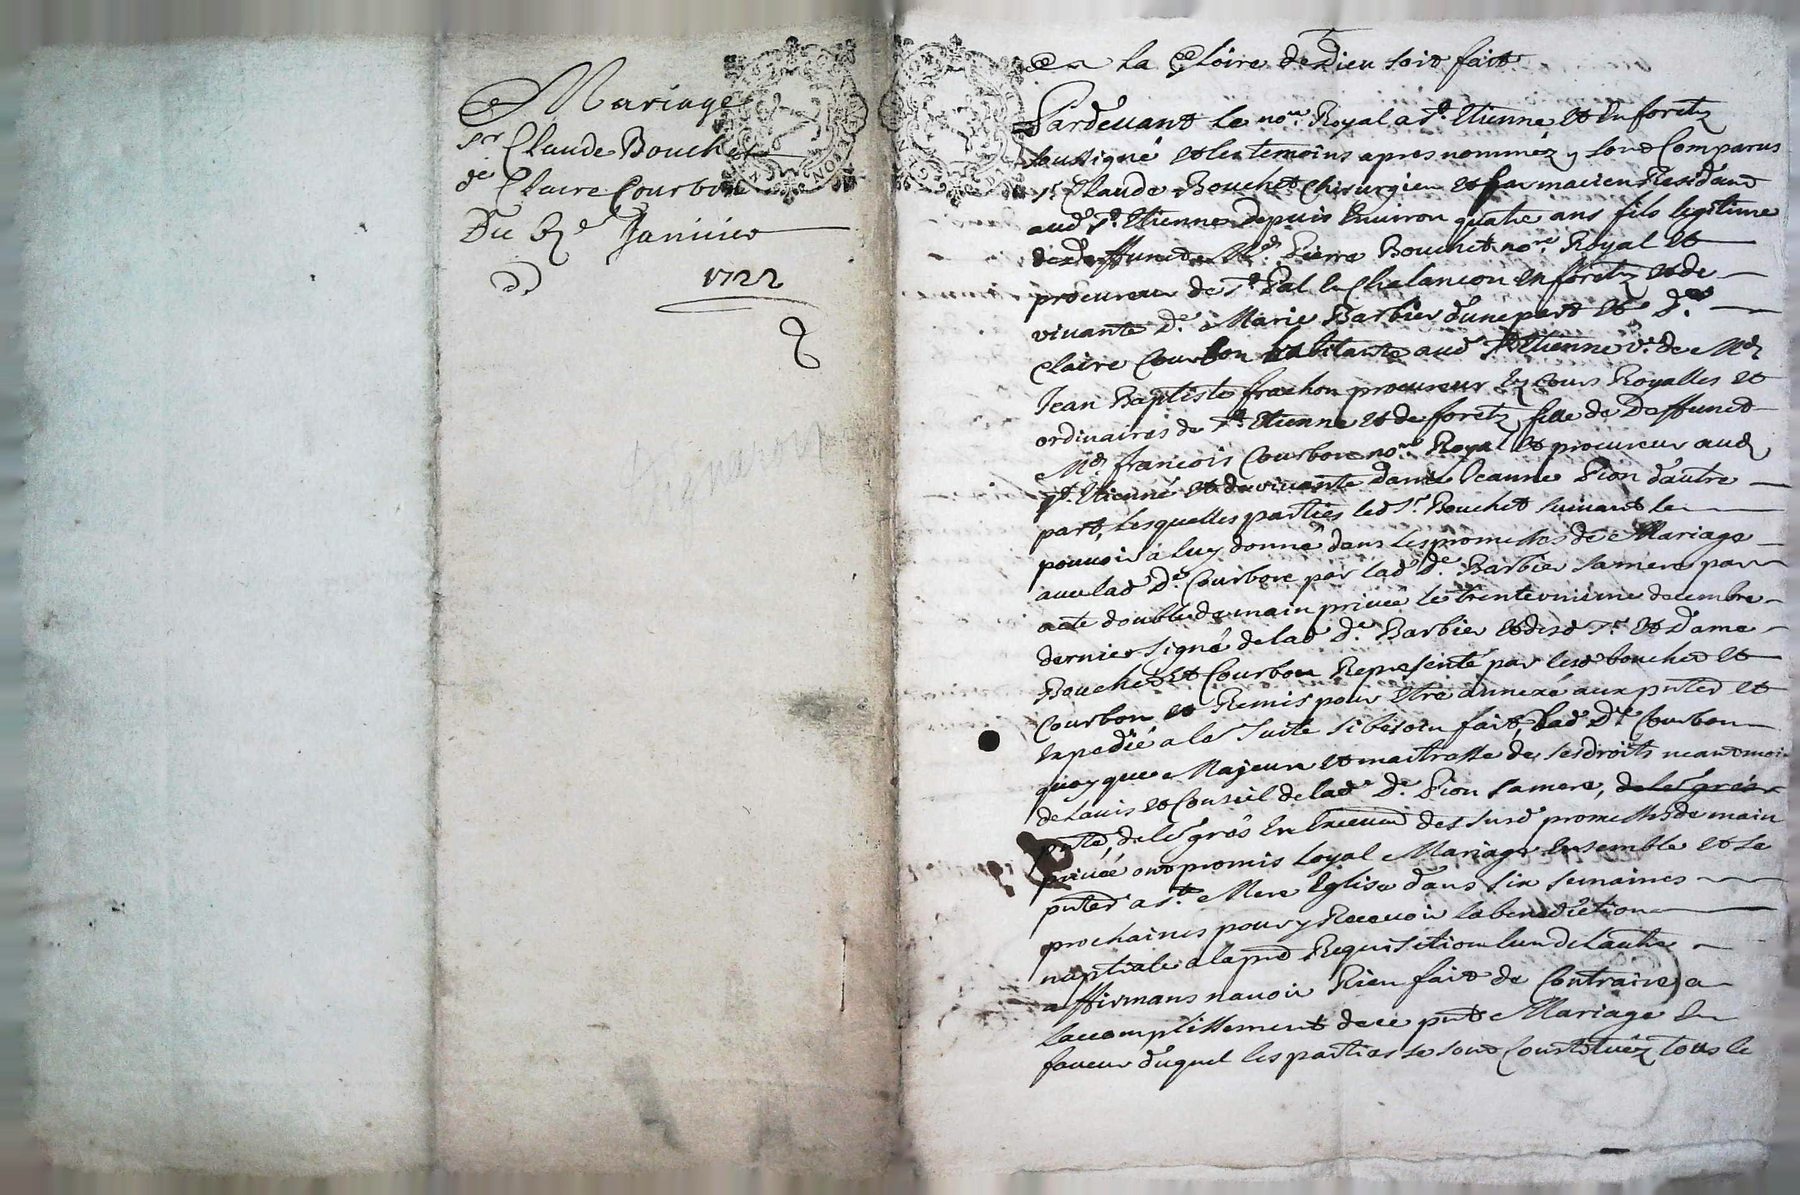 Mariage
Sr Claude Bouchet
de Claire Courbon
Du Janvier
1722
En la Gloire de Dieu soit fait
Pardevant le nore Royal a St Etienne et en forest
soussigné et les temoins apres nommez, sont Comparus
Sr Claude Bouchet Chirurgien et farmacien Residant
aud St Etienne depuis Environ quatre ans fils legitime
de deffunct Me Pierre Bouchet nore Royal et
procureur de St Pal en Chalancon en forest et de
vivante De Marie Barbier d'une part et De
Claire Courbon habitante aud St Etienne ve de Me
Jean Baptiste frachon procureur Ez Cours Royalles et
ordinaires de St Etienne et de forest, fille de Deffunct
Me francois Courbon nore Royal et procureur aud
St Etienne et de vivante dame Jeanne Pion d'autre
part, Lesquelles parties led Sr Bouchet suivant le
pouvoir a luy donné dans les promesses de Mariage
avec lad De Courbon par lad De Barbier sa mere par
acte double de main privée le trente unieme decembre
dernier signé de lad De Barbier et desd Sr et Dame
Bouchet et Courbon Representé par lesd bouchet et
Courbon et Remis pour Etre annexé aux pntes et
Expedié a la suite si besoin fait, Lad De Courbon
quoyque Majeure et maitresse de ses droits neantmoin
de Lavis et Conseil de lad De Pion sa mere, de les grés
pnte, de les grés En des susd promesses de main
privée ont promis Loyal Mariage Ensemble et se
pnter a St Mere Eglise dans six semaines
prochaines pour y Recevoir la benediction
nuptiale a la pre Requisition lun de Lautre
affirmans navoir Rien fait de Contraire a
Laccomplissement de ce pnt Mariage En
faveur duquel les parties se sont Constituéz tous le